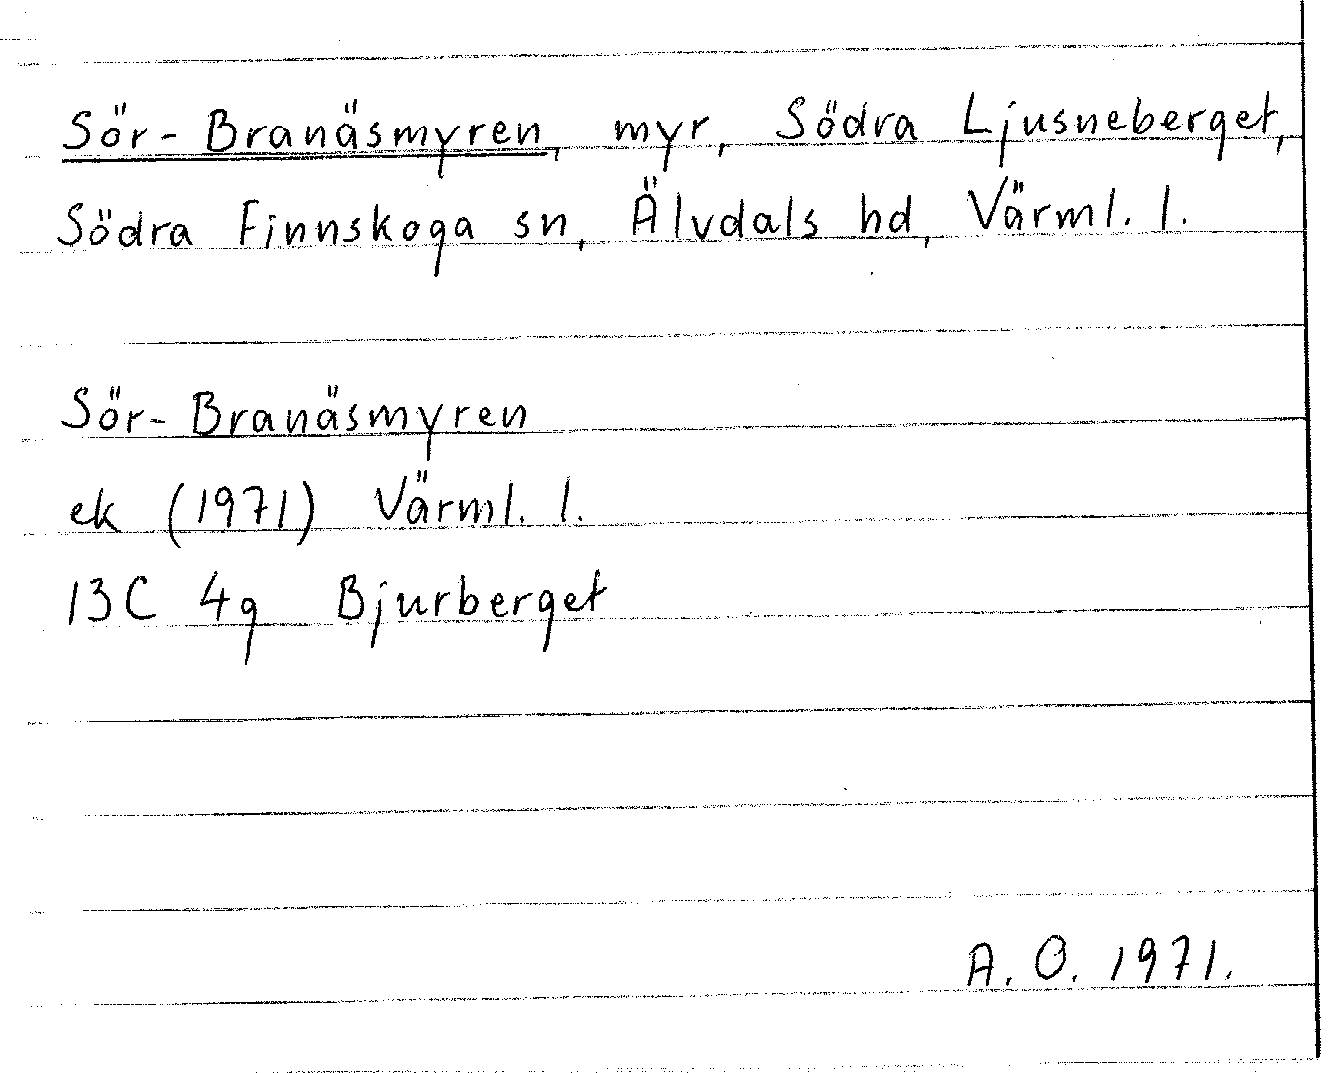 Sör-Branäsmyren, myr, Södra Ljusneberget,
Södra Finnskoga sn, Älvdals hd, Värml. l.
Sör-Branäsmyren
ek (1971) Värml. l.
13C 4g Bjurberget
A. O. 1971.